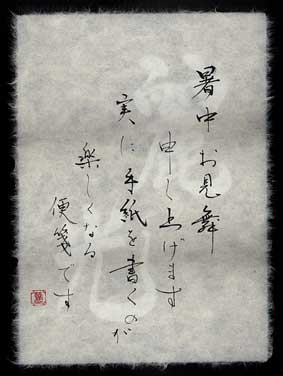 暑中お見舞
申し上げます
実に手紙を書くのが
楽しくなる
便箋です